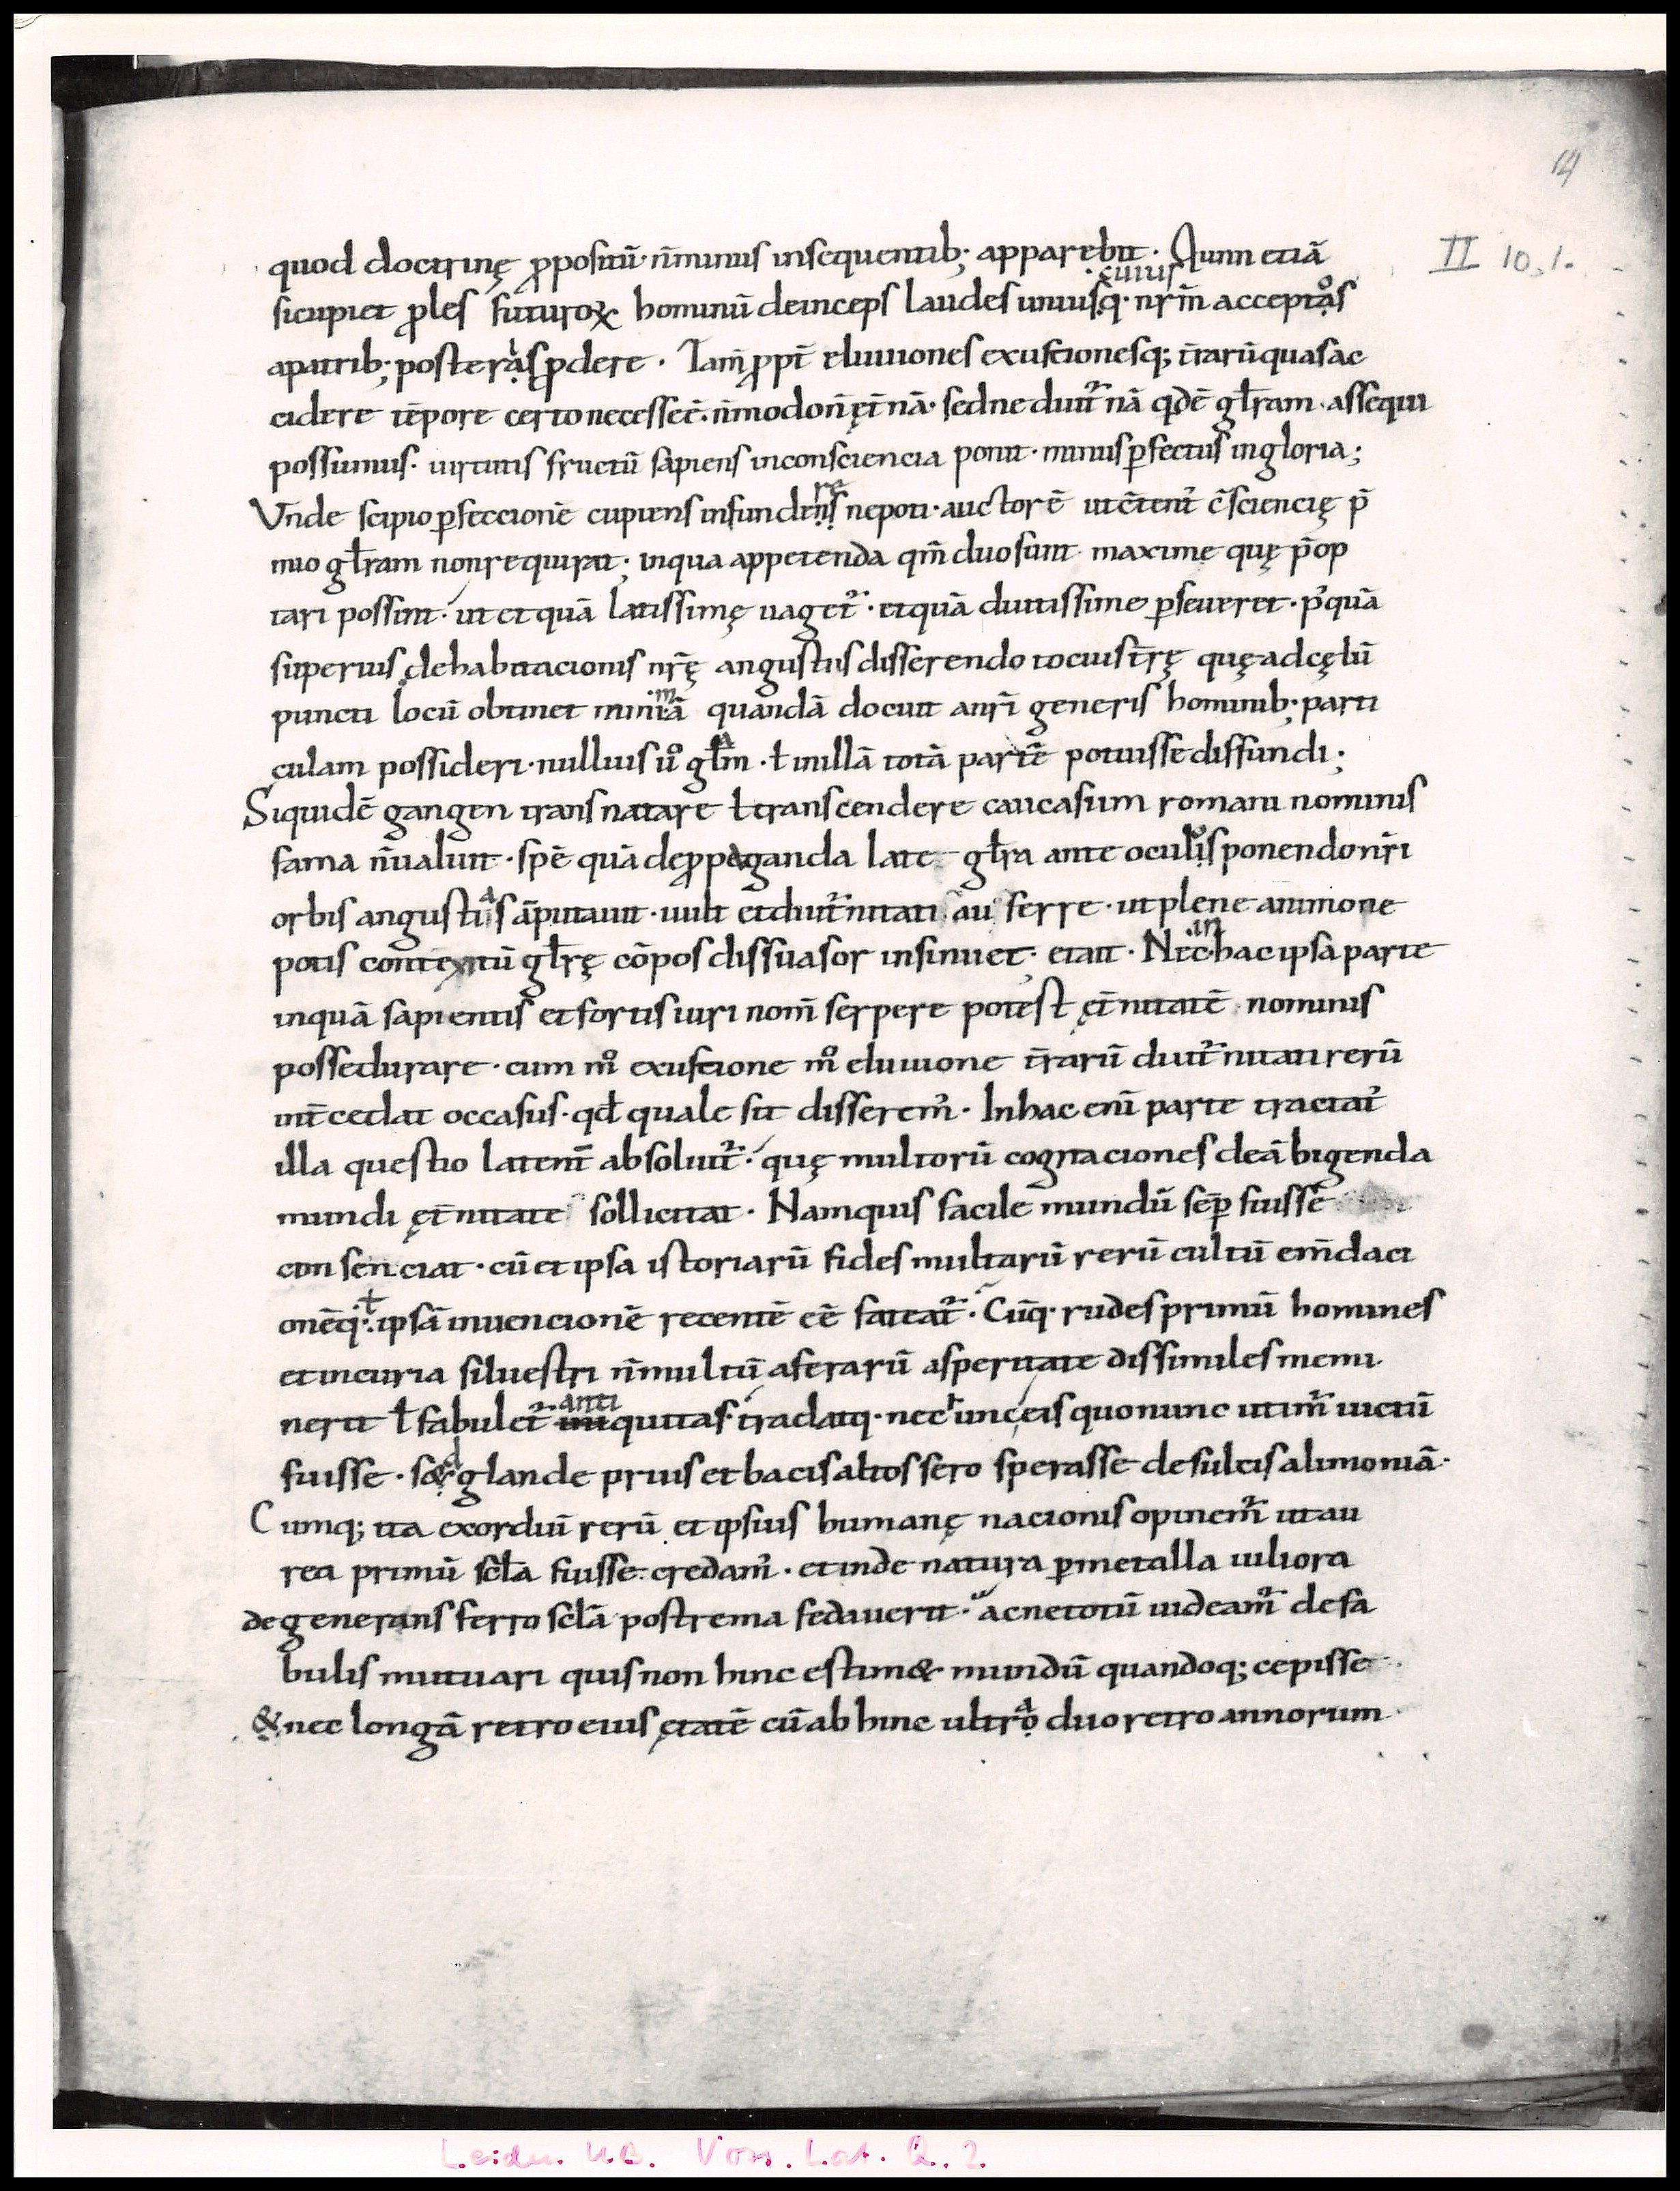 14
II 10,1.
quod doctrinę ꝓpositū· n̄minus insequentib; apparebit · Quin etiā
sicupiet ꝓles futuroꝝ hominū deinceps laudes uniusq̣· cuius nr̄m acceptạos
apatrib; posterạis ꝓdere · Iam̄ ꝓpt̄ eluuiones exuſtionesq; t̄rarū quas ac
cidere tēpore certo necesseē· n̄modo n̄ ęt̄nā· sed ne diut̄nā qdē gl̄ram assequi
possumus· uirtutis fructū sapiens inconsciencia ponit· minus ꝑfectus ingloria;
Vnde scipio ꝑfeccionē cupiens infundeṇṣre nepoti· auctor ē ut c̄tent᷒ c̄sciencię p̄
mio gl̄ram non requirat; inqua appetenda qm̄ duo sunt maxime quę p̄op
tari possint· ut et quā latissimę uaget᷒· et quā diutissime ꝑseueret· p᷒quā
superius dehabitacionis nr̄ę angustiis disserendo tocius t̄rę quę ad cęlū
puncti locū obtinet minimā quandā docuit anr̄i generis hominib; parti
culam possideri· nullius ūo gl̄am · ł inillā totā partē potuisse diffundi;
Siquidē gangen transnatare ł transcendere caucasum romani nominis
fama n̄ualuit· spē quā deꝓpaganda late gl̄ra ante oculịos ponendo nr̄i
orbis angustias āputauit· uult et diut̄nitati au ferre· ut plene animo ne
potis contextū gl̄rę cōpos dissuasor insinuet· et ait· Nec in hac ipsa parte
inquā sapientis et fortis uiri nom̄ serpere potest ęt̄nitatē nominis
posse durare· cum mo exustione mo eluuione t̄rarū diut̄nitati rerū
int̄cedat occasus· qd̄ quale sit disserem᷒· Inhac enī parte tractat᷒
illa questio latent̄ absoluit᷒· quę multorū cogitaciones deābigenda
mundi ęt̄nitate sollicitat· Nam quis facile mundū semꝑ fuisse
consenciat· cū et ipsa istoriarū fides multarū rerū cultū em̄daci
onēq·ł ipsā inuencionē recentē eē fateat᷒· Cūq· rudes primū homines
et incuria siluestri n̄multū aferarū asperitate dissimiles memi
nerit ł fabulet᷒ antiquitas· tradatq· nec hunc eis quo nunc utim᷒ uictū
fuisse· sed glande prius et bacis altos sero sperasse desulcis alimoniā·
Cumq; ita exordiū rerū et ipsius humanę nacionis opinem᷒ ut au
rea primū scl̄a fuisse credam᷒· et inde natura ꝑmetalla uiliora
degenerans ferro scl̄a postrema fedauerit· ac ne totū uideam᷒ defa
bulis mutuari quis non hinc estim& mundū quandoq; cepisse
& nec longā retro eius ętatē cū ab hinc ultrạo duo retro annorum
Leiden. U.B. Voss. Lat. Q. 2.